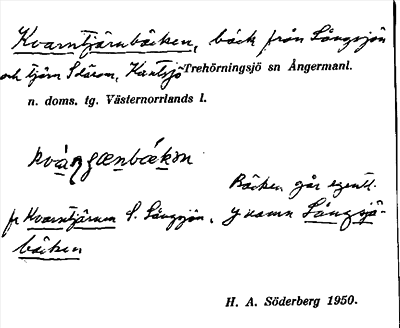 Kvarntjärnbäcken, bäck från Långsjön
och tjärn S därom, Trehörningsjö sn Ångermanl.
n. doms. tg. Västernorrlands l.
Bäcken går egentl.
fr Kvarntjärnen S. Långsjön, namn Långsjö-
bäcken
H. A. Söderberg 1950.